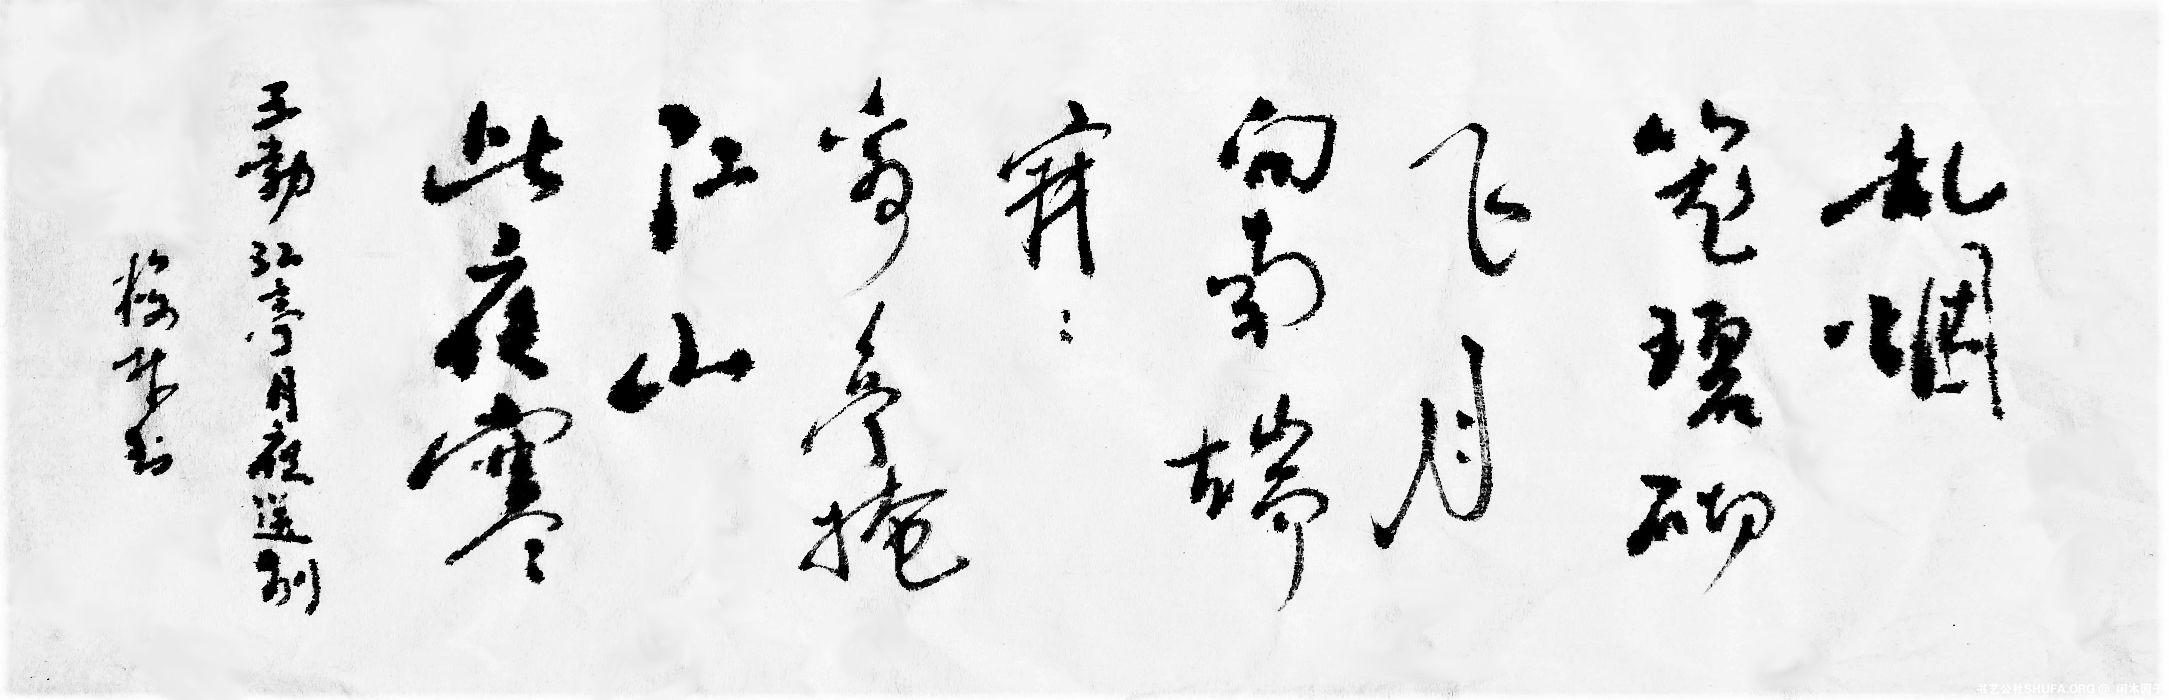 乱烟
笼碧砌
飞月
向南端
寂〻
离亭掩
江山
此夜寒
王勃江亭月夜送别
书艺公社SHUFA.ORG@